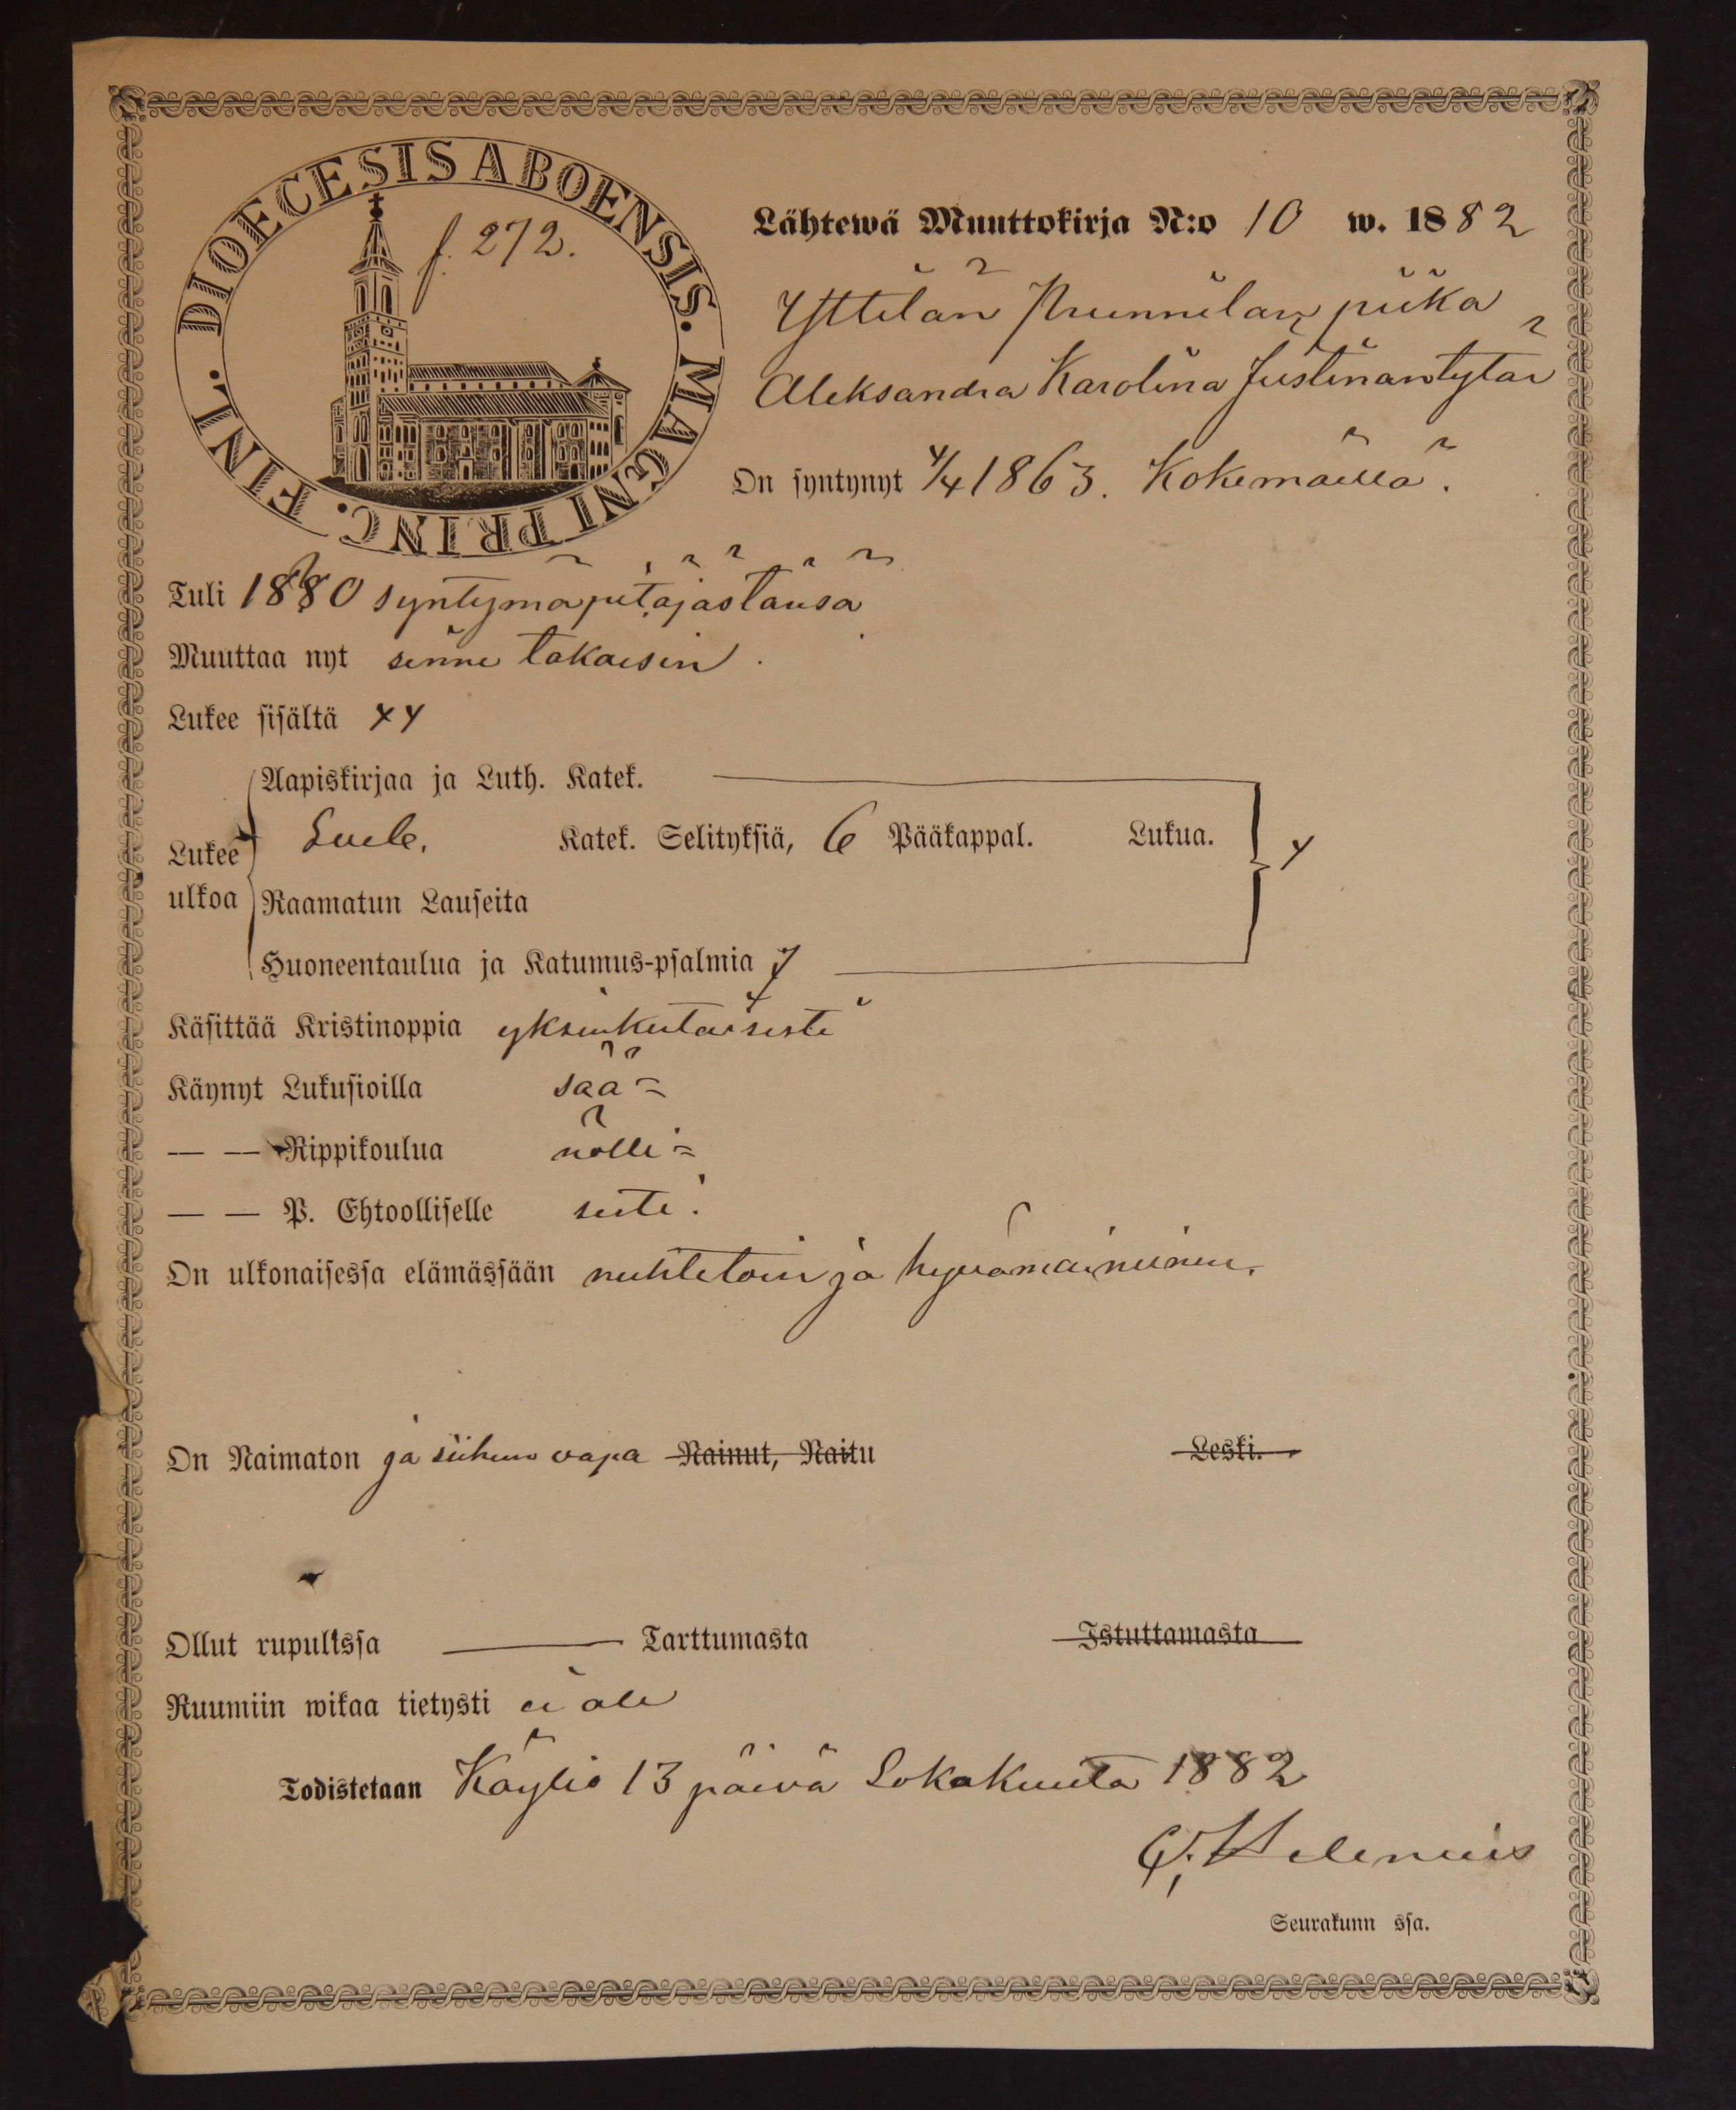 DIOECESIS ABOENSIS. MAGNI PRINC. FINL.
f. 272.
Lähtewä Muuttokirja N:o 10 w. 1882
Yttilän piika
Aleksandra Karolina Justinantytär
On syntynyt 4/4 1863. Kokemäellä.
Tuli 1880 syntymäpitäjästänsä
Muuttaa nyt sinne takaisin.
Lukee sisältä xx
Aapiskirjaa ja Luth. Katek.
Lukee ulkoa
Katek. Selityksiä, 6 Pääkappal. Lukua. x
Raamatun Lauseita
Huoneentaulua ja Katumus-psalmia 7
Käsittää Kristinoppia yksinkertaisesti
Käynyt Lukusioilla sää=
— — Rippikoulua nölli=
— — P. Ehtoolliselle sesti.
On ulkonaisessa elämässään nuhtetoin ja hyvämaineinen.
On Naimaton ja siihen vapa Nainut, Naitu Leski.
Ollut rupulissa Tarttumasta Istuttamasta
Ruumiin wikaa tietysti ei ole
Todistetaan Köyliö 13 päivä Lokakuuta 1882
Helenius
Seurakunn ssa.